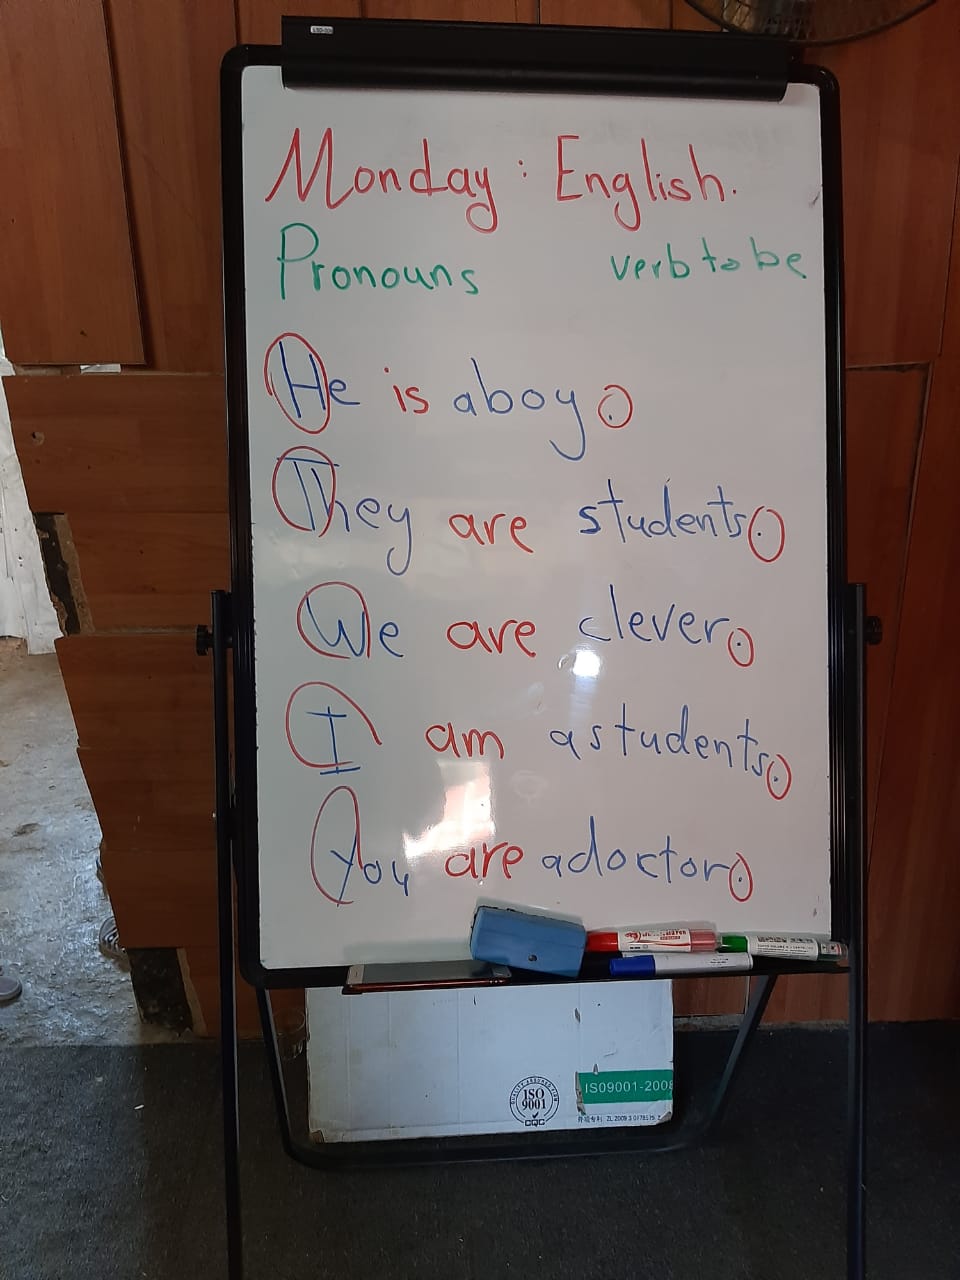 Monday : English.
Pronouns verb to be
He is aboy.
They are students.
We are clever.
I am a students.
You are adoctor.
ISO
9001
CQC
ISO9001-2008